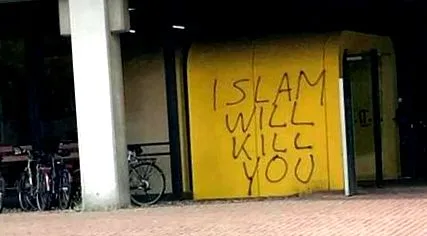 ISLAM
WILL
KILL
YOU